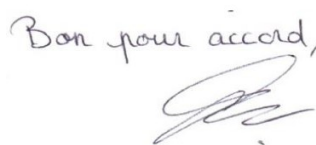 Bon pour accord,